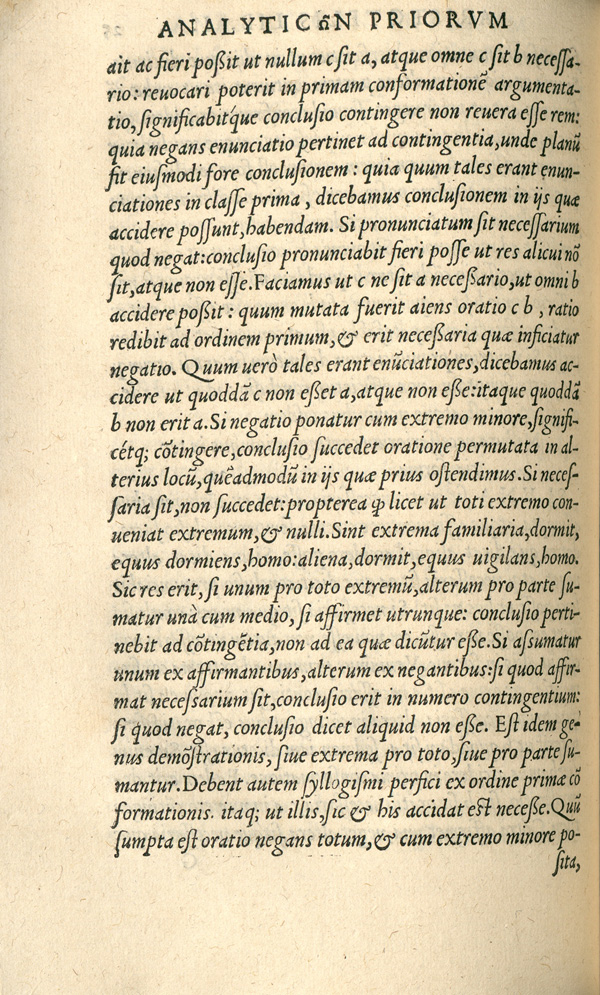 ANALYTICωN PRIORVM
ait ac fieri poßit ut nullum c ſit a, atque omne c ſit b neceſſa-
rio: reuocari poterit in primam conformationẽ argumenta-
tio, ſignificabitq́ue concluſio contingere non reuera eſſe rem:
quia negans enunciatio pertinet ad contingentia, unde planũ
fit eiuſmodi fore concluſionem: quia quum tales erant enun-
ciationes in claſſe prima, dicebamus concluſionem in ijs quæ
accidere poſſunt, habendam. Si pronunciatum ſit neceſſarium
quod negat: concluſio pronunciabit fieri poſſe ut res alicui nõ
ſit, atque non eſſe. Faciamus ut c ne ſit a neceßario, ut omni b
accidere poßit: quum mutata fuerit aiens oratio c b, ratio
redibit ad ordinem primum, & erit neceßaria quæ inficiatur
negatio. Quum uerò tales erant enũciationes, dicebamus ac-
cidere ut quoddã c non eßet a, atque non eße: itaque quoddã
b non erit a. Si negatio ponatur cum extremo minore, ſignifi-
cétq; cõtingere, concluſio ſuccedet oratione permutata in al-
terius locũ, quẽadmodũ in ijs quæ prius oſtendimus. Si neceſ-
ſaria ſit, non ſuccedet: propterea ꝙ licet ut toti extremo con-
ueniat extremum, & nulli. Sint extrema familiaria, dormit,
equus dormiens, homo: aliena, dormit, equus uigilans, homo.
Sic res erit, ſi unum pro toto extremũ, alterum pro parte ſu-
matur unà cum medio, ſi affirmet utrunque: concluſio perti-
nebit ad cõtingẽtia, non ad ea quæ dicũtur eße. Si aſsumatur
unum ex affirmantibus, alterum ex negantibus: ſi quod affir-
mat neceſsarium ſit, concluſio erit in numero contingentium:
ſi quod negat, concluſio dicet aliquid non eße. Eſt idem ge-
nus demõſtrationis, ſiue extrema pro toto, ſiue pro parte ſu-
mantur. Debent autem ſyllogiſmi perfici ex ordine primæ cõ
formationis. itaq; ut illis, ſic & his accidat eſt neceße. Quũ
ſumpta eſt oratio negans totum, & cum extremo minore po-
ſita,